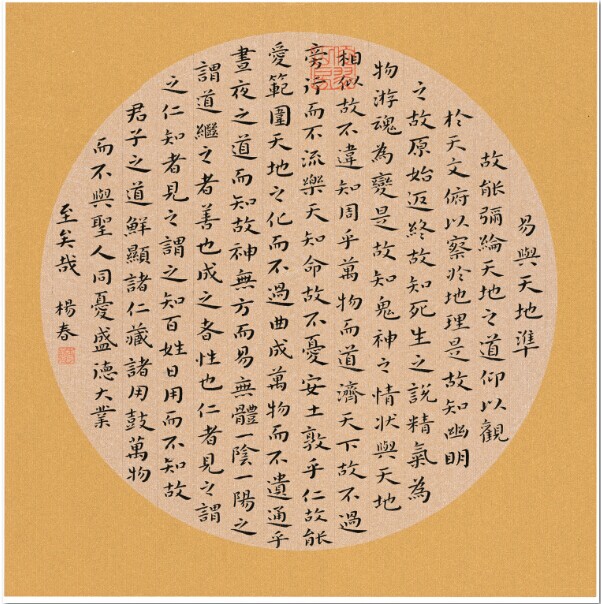 易與天地準
故能彌綸天地之道仰以觀
於天文俯以察於地理是故知幽明
之故原始返終故知死生之說精氣為
物游魂為變是故知鬼神之情狀與天地
相似故不違知周乎萬物而道濟天下故不過
旁行而不流樂天知命故不憂安土敦乎仁故能
愛範圍天地之化而不過曲成萬物而不遺通乎
晝夜之道而知故神無方而易無體一陰一陽之
謂道繼之者善也成之者性也仁者見之謂
之仁知者見之謂之知百姓日用而不知故
君子之道鮮顯諸仁藏諸用鼓萬物
而不與聖人同憂盛德大業
至矣哉 楊春